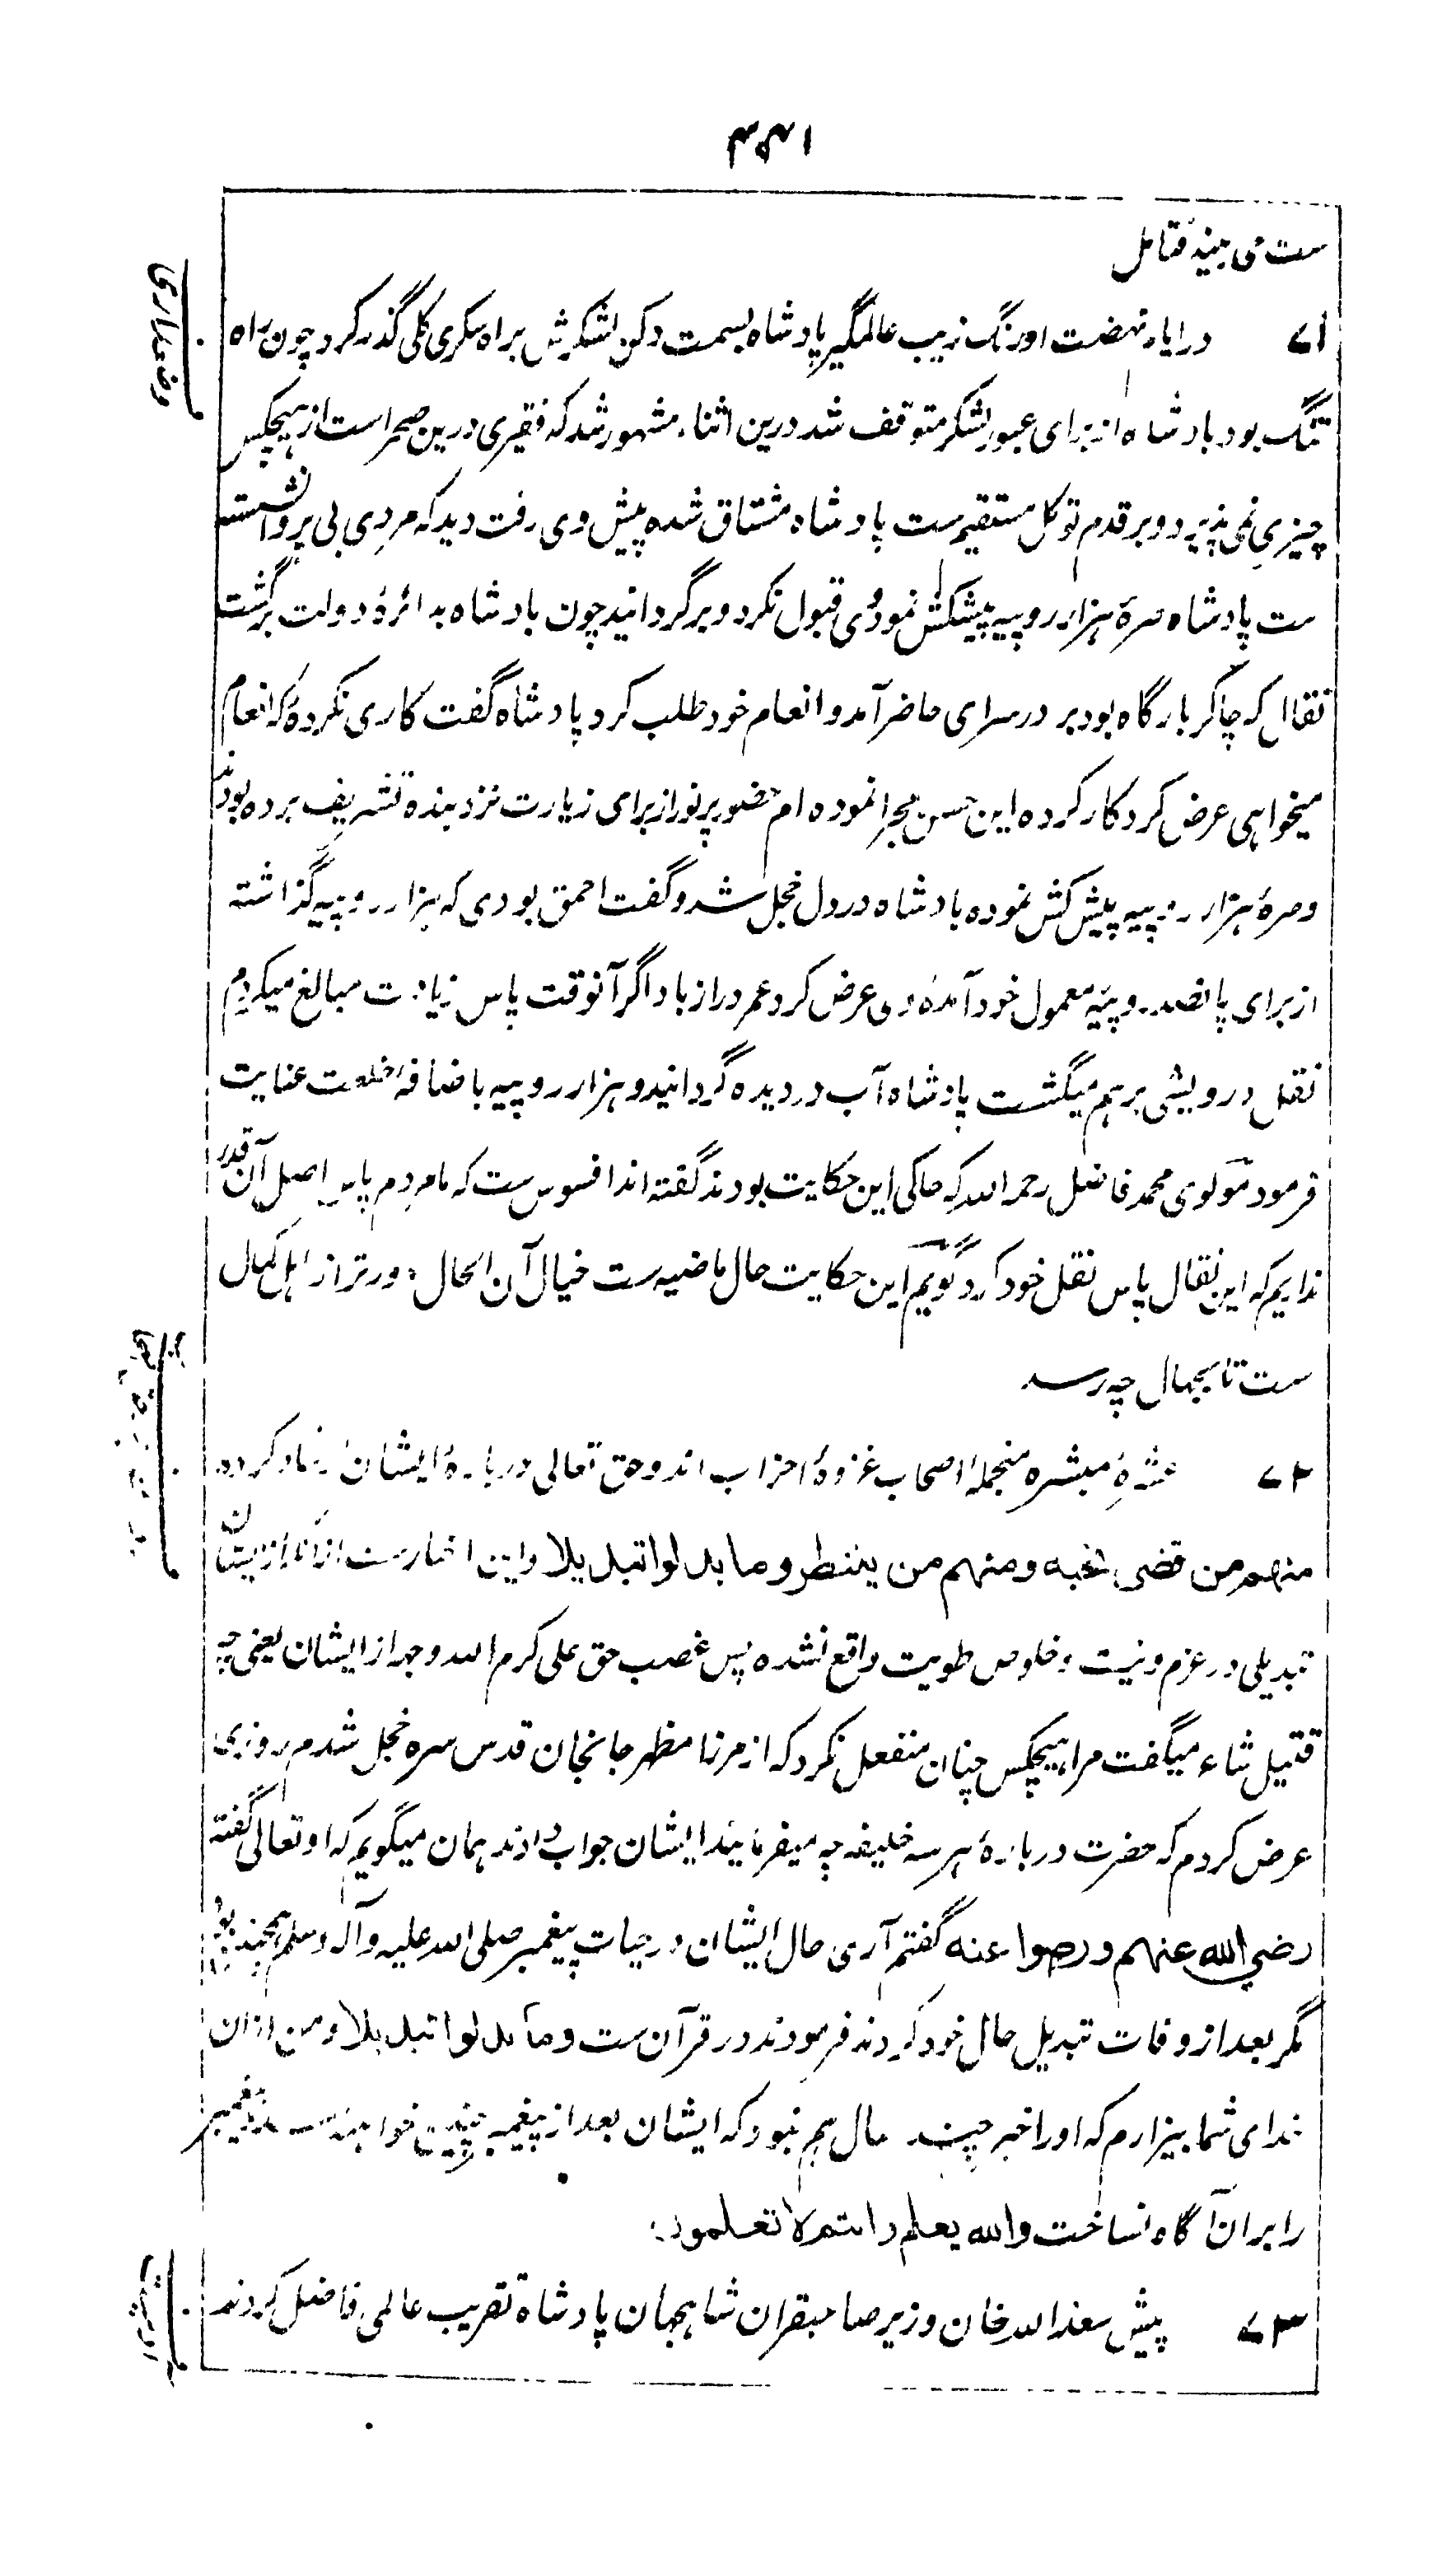 ست می بیند فتامل
۷۱ در ایام نهضت اورنگ زیب عالمگیر پادشاه بسمت دکن لشکرش براه سکری گلی گذر کرد چون راه
تنگ بود بادشاه از برای عبور لشکر متوقف شد درین اثناء مشهور شد که فقیری درین صحراست از هیچکس
چیزی نمی پذیرد و بر قدم توکل مستقیم ست پادشاه مشتاق شده پیش وی رفت دید که مردی بی پروا نشسته
ست پادشاه صرهٔ هزار روپیه پیشکش نمود وی قبول نکرد و برگردانید چون بادشاه به دائرهٔ دولت برگشت
نقال که چاکر بارگاه بود بر در سرای حاضر آمد و انعام خود طلب کرد پادشاه گفت کاری نکردهٔ که انعام
میخواهی عرض کرد کار کرده این حسن مجرا نموده ام حضور پرنور از برای زیارت نزد بنده تشریف برده بودند
و صرهٔ هزار روپیه پیش کش نموده بادشاه در دل خجل شد و گفت احمق بودی که هزار روپیه گذاشته
از برای پانصد روپیه معمول خود آمدهٔ وی عرض کرد عمر دراز باد اگر آنوقت پاس زیادت مبالغ میکردم
نقل درویشی برهم میگشت پادشاه آب در دیده گردانید و هزار روپیه باضافهٔ خلعت عنایت
فرمود مولوی محمد فاضل رحمه الله که حاکی این حکایت بودند گفته اند افسوس ست که ما مردم پاس اصل آن قدر
نداریم که این نقال پاس نقل خود کرد گویم این حکایت حال ماضیه ست خیال آن الحال دورتر از اهل کمال
ست تا بجهال چه رسد
۷۲ عشرهٔ مبشره منجملهٔ اصحاب غزوهٔ احزاب اند و حق تعالی دربارهٔ ایشان ارشاد کرده
منهم من قضی نحبه ومنهم من ینتظر وما بدلوا تبدیلا و این اخبارست از آنکه از ایشان
تبدیلی در عزم و نیت و خلوص طویت واقع نشده پس غصب حق علی کرم الله وجهه از ایشان یعنی چه
قتیل شاعر میگفت مرا هیچکس چنان منفعل نکرد که از مرزا مظهر جانجان قدس سره خجل شدم روزی
عرض کردم که حضرت دربارهٔ هر سه خلیفه چه میفرمایند ایشان جواب دادند همان میگویم که او تعالی گفته
رضی الله عنهم ورضوا عنه گفتم آری حال ایشان در حیات پیغمبر صلی الله علیه وآله وسلم همچنین بود
مگر بعد از وفات تبدیل حال خود کردند فرمودند در قرآن ست وما بدلوا تبدیلا و من ازان
خدای شما بیزارم که او را خبر چنین حال هم نبود که ایشان بعد از پیغمبر چنین خواهند پیغمبر
را بران آگاه نساخت والله یعلم وانتم لا تعلمون
۷۳ پیش سعد الله خان وزیر صاحبقران شاهجهان پادشاه تقریب عالمی فاضل کردند